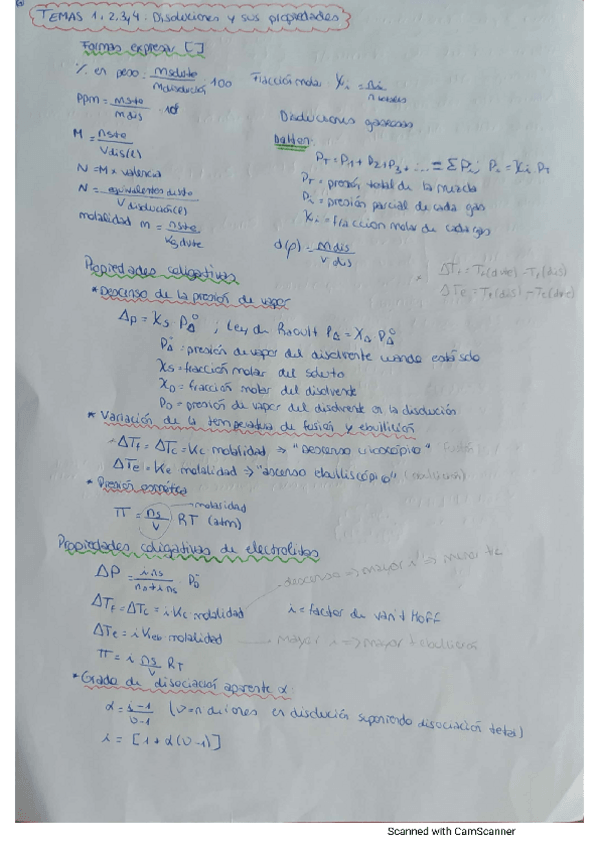 TEMAS 1, 2, 3, 4. Disoluciones y sus propiedades
Formas expresar []
% en peso: msoluto / mdisolución · 100
Fracción molar Xi = ni / n totales
ppm = msto / mdis · 10⁶
Disoluciones gaseosas
M = nsto / Vdis(l)
Dalton:
PT = P1 + P2 + P3 + ... = ΣPi ; Pi = Xi · PT
N = M × valencia
PT = presión total de la mezcla
N = equivalentes de sto / V disolución(l)
Pi = presión parcial de cada gas
Xi = fracción molar de cada gas
molalidad m = nsto / Kg dvte
d(ρ) = mdis / V dis
Propiedades coligativas
ΔTf = Tf(dvte) - Tf(dis)
ΔTe = Te(dis) - Te(dvte)
* Descenso de la presión de vapor
Δp = Xs P°Δ ; Ley de Raoult PΔ = XΔ P°Δ
P°Δ = presión de vapor del disolvente cuando está solo
Xs = fracción molar del soluto
XD = fracción molar del disolvente
PD = presión de vapor del disolvente en la disolución
* Variación de la temperatura de fusión y ebullición
ΔTf = ΔTc = Kc molalidad ⇒ "descenso crioscópico" fusión
ΔTe = Ke molalidad → "ascenso ebulliscópico" (ebullición)
* Presión osmótica
molaridad
π = ns / V RT (atm)
Propiedades coligativas de electrolitos
ΔP = i ns / nD + i ns P°D
descenso ⇒ mayor i ⇒ menor tc
ΔTf = ΔTc = i Kc molalidad
i = factor de van't Hoff
ΔTe = i Keb molalidad
mayor i ⇒ mayor t ebullición
π = i ns / V RT
* Grado de disociación aparente α:
α = i - 1 / υ - 1 (υ = n de iones en disolución suponiendo disociación total)
i = [1 + α(υ - 1)]
Scanned with CamScanner